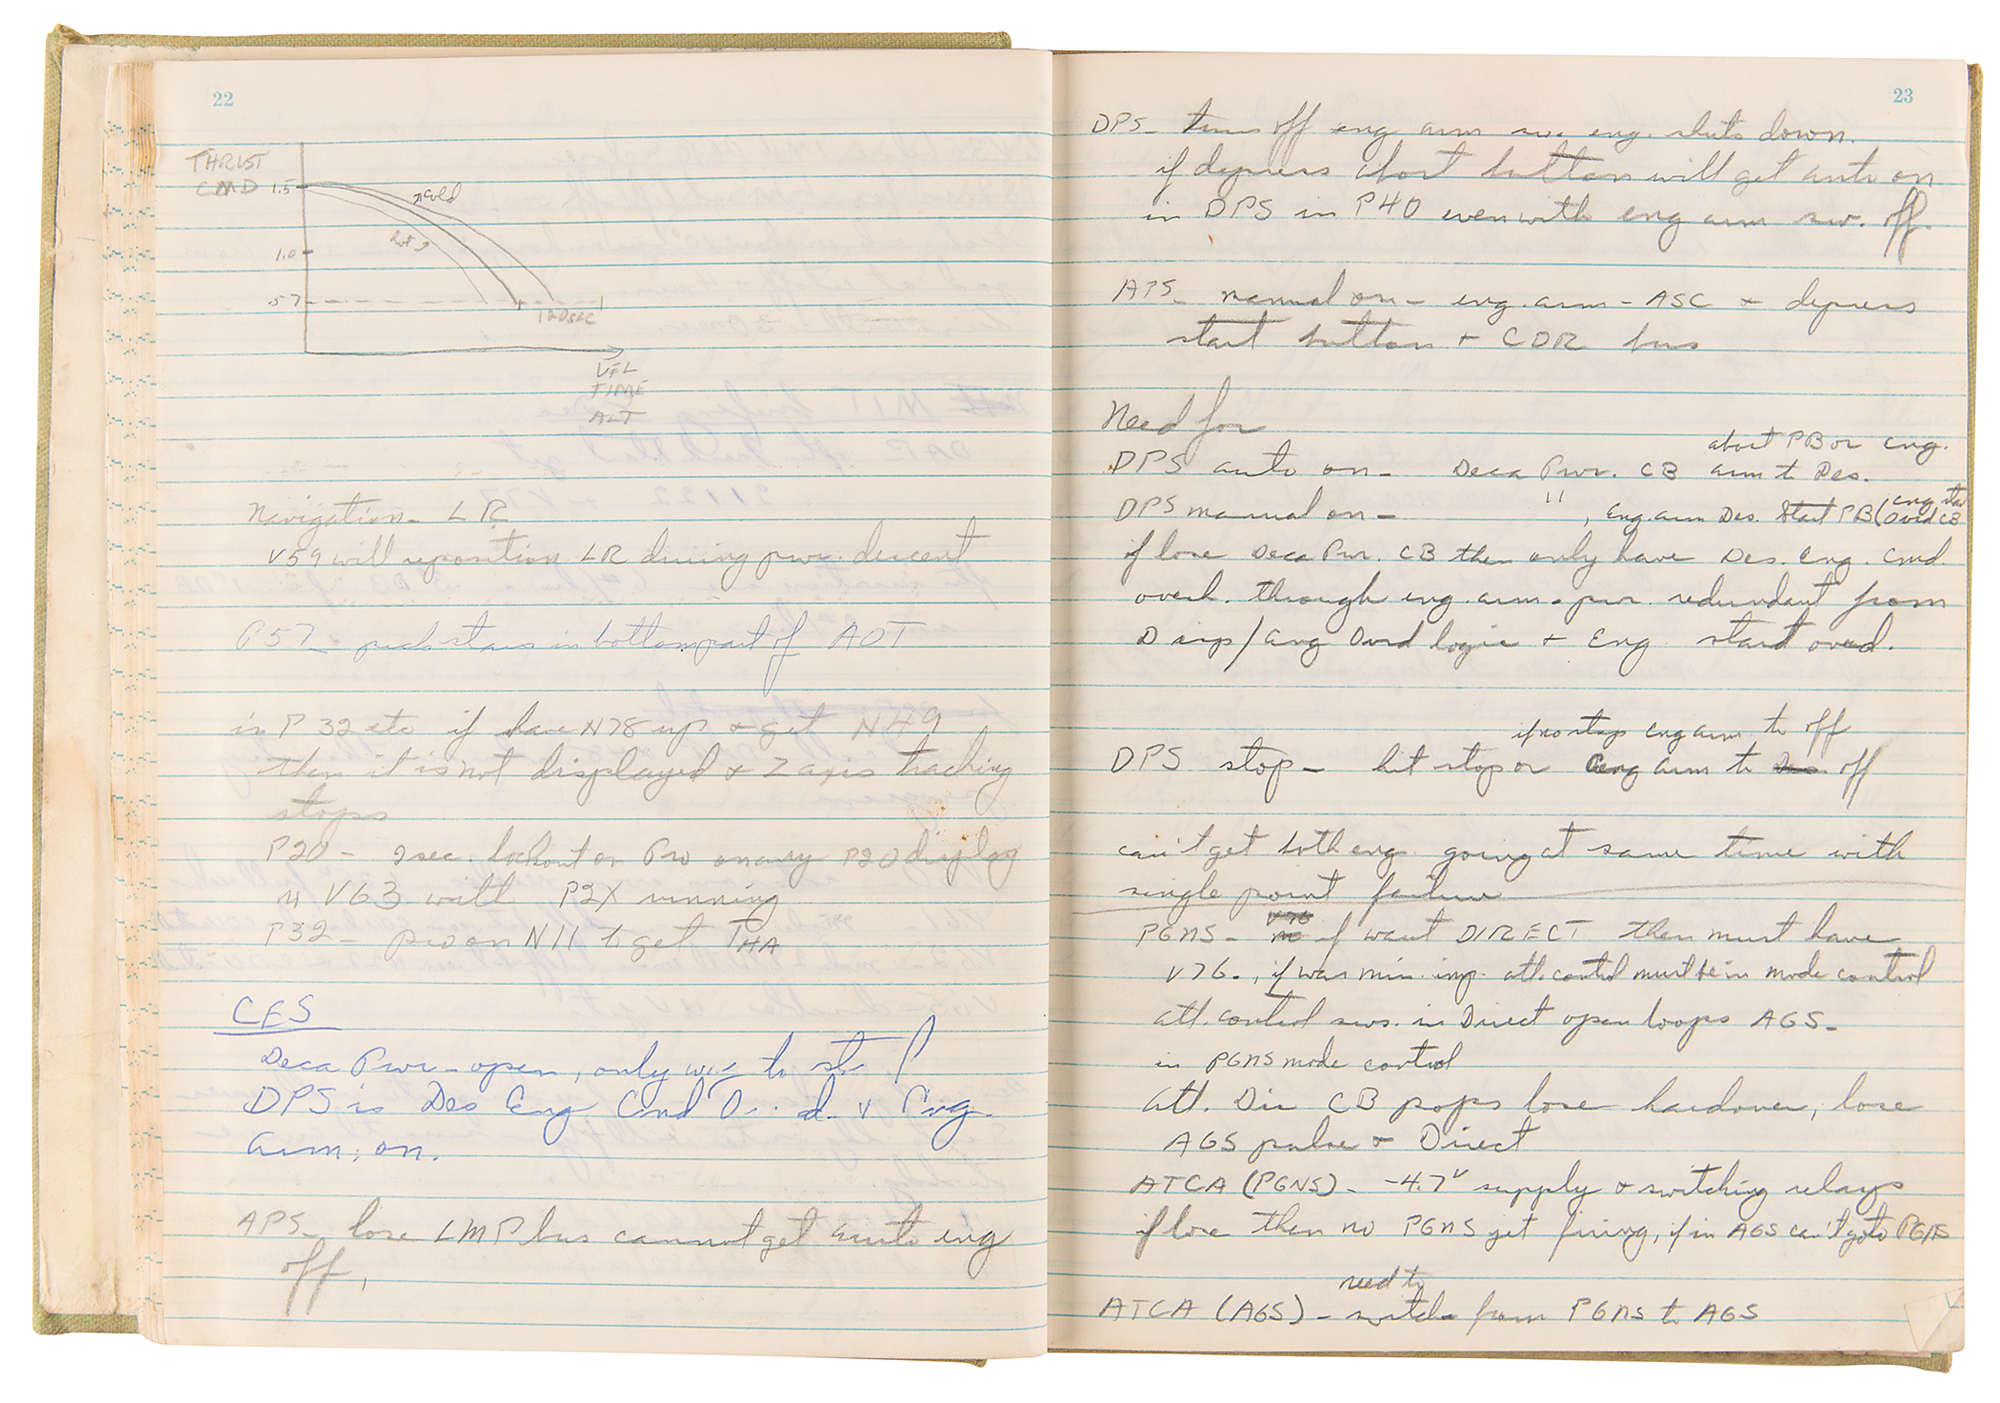 22
THRUST
CMD 1.5
cold
hot
1.0
.57
120 sec
VEL
TIME
ALT
Navigation - LR
V59 will reposition LR during pwr. descent
P57 - pick stars in bottom part of AOT
in P 32 etc if have N78 up & get N49
then it is not displayed & Z axis tracking
stops
P20 - 2 sec. lockout on Pro on any P20 display
V63 with P2X running
P32 - pro on N11 to get THA
CES
Deca Pwr - open, only way to st
DPS is Des Eng Cmd & Eng
arm, on.
APS - lose LMP bus cannot get auto eng
off,
23
DPS - turn off eng arm sw. eng. shuts down.
if depress Abort button will get auto on
in DPS in P40 even with eng arm sw. off.
APS - manual on - eng. arm - ASC & depress
start button + CDR bus
Need for
abort PB or eng.
DPS auto on - Deca Pwr. CB arm to Des.
DPS manual on - " , Eng. arm Des. Start PB (eng sta
Ovrd CB
if lose Deca Pwr. CB then only have Des. Eng. Cmd.
overd. through eng. arm - pwr. redundant from
D inp/Eng Ovrd logic + Eng start overd.
if no stop eng arm to off
DPS stop - hit stop or eng arm to off
can't get both eng. going at same time with
single point failure
PGNS - if want DIRECT then must have
V76., if was min. imp. att. control must be in mode control
att. control sws. in Direct open loops AGS -
in PGNS mode control
Att. Dir CB pops lose hardover, lose
AGS pulse & Direct
ATCA (PGNS) - -4.7v supply & switching relays
if lose then no PGNS jet firing, if in AGS can't go to PGNS
need to
ATCA (AGS) - switch from PGNS to AGS